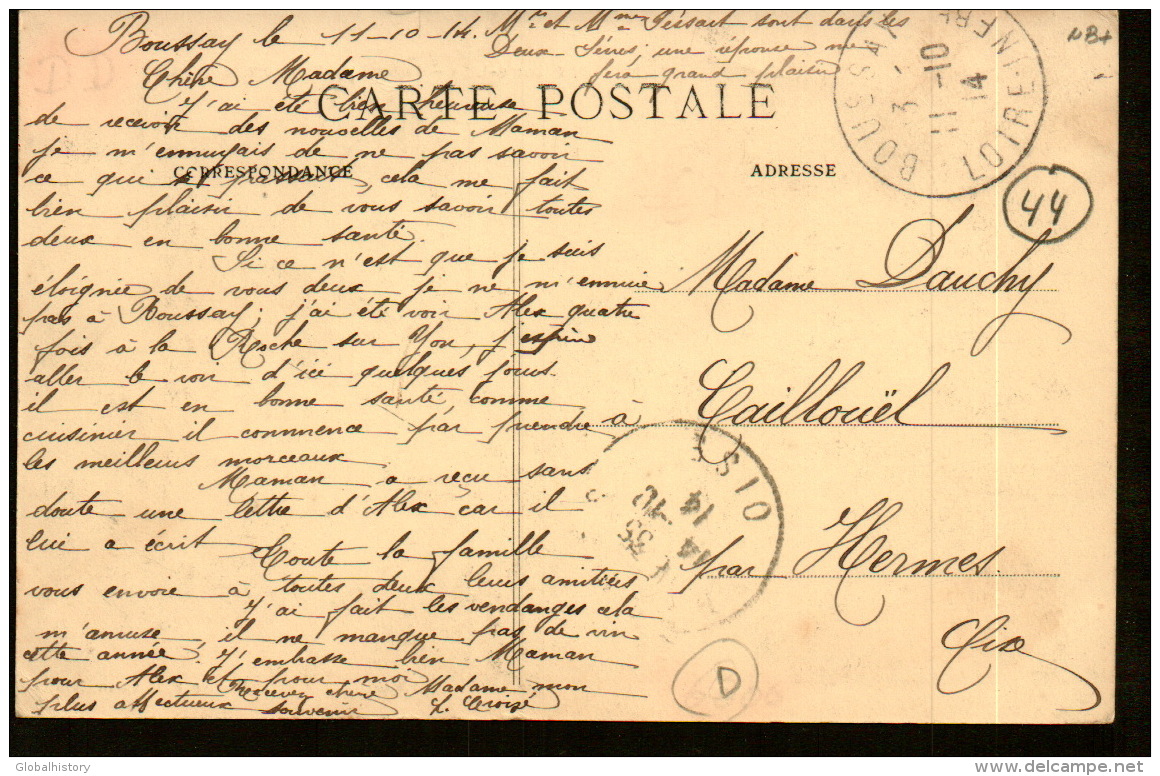 Boussay le 11-10-14. Mr et Mme Péssart sont dans les
Deux-Sèvres; une réponce me
fera grand plaisir
Chère Madame
CARTE POSTALE
J'ai été bien heureuse
de recevoir des nouvelles de Maman
je m'ennuyais de ne pas savoir
CORRESPONDANCE
ce qui se passait, cela me fait
bien plaisir de vous savoir toutes
deux en bonne santé.
Si ce n'est que je suis
éloignée de vous deux je ne m'ennuie
pas à Boussay; j'ai été voir Alex quatre
fois à la Roche sur Yon, j'espère
aller le voir d'ici quelques jours.
il est en bonne santé comme
cuisinier il commence par prendre
les meilleurs morceaux
Maman a reçu sans
doute une lettre d'Alex car il
lui a écrit
Toute la famille
vous envoie à toutes deux leurs amitiées
J'ai fait les vendanges cela
m'amuse, il ne manque pas de vin
cette année. J'embrasse bien Maman
pour Alex et pour moi
Recevez chère Madame mon
plus affectueux souvenir
ADRESSE
Madame Dauchy
à Caillouël
par Hermes
Oise
BOUSSAY
3
11-10
14
LOIRE-INFRE
44
OISE
14
14
35
D
Globalhistory
delcampe.net